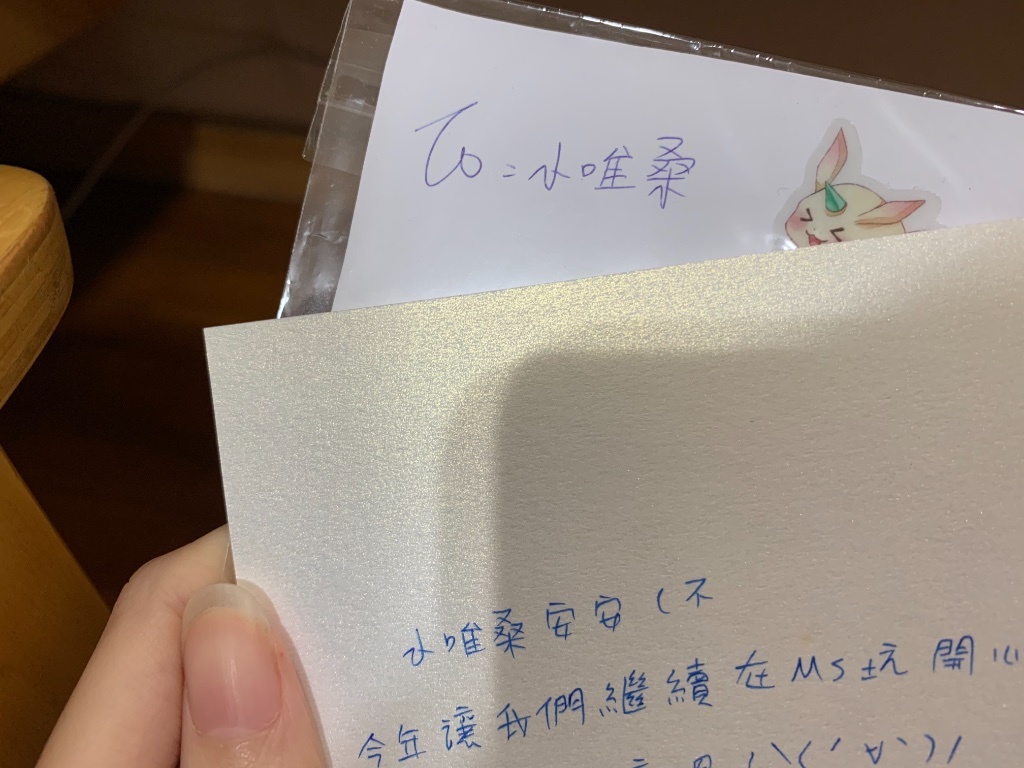 To:小唯桑
小唯桑安安(不
今年讓我們繼續在MS坑開心
\(´∀`)/